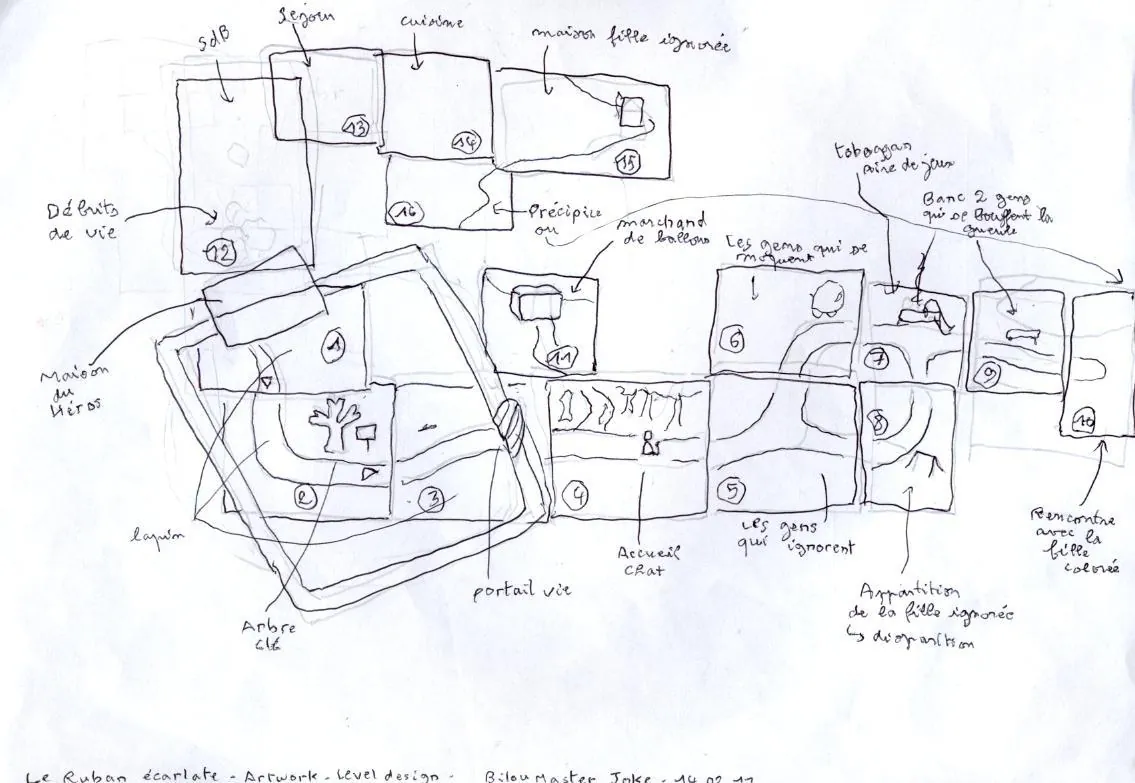 SdB
Sejour
cuisine
maison fille ignorée
13
14
15
16
12
Débuts
de vie
Précipice
ou
marchand
de ballons
Les gens qui se
moquent
toboggan
aire de jeux
Banc 2 gens
qui se bouffent la
gueule
Maison
du
Héros
1
11
6
7
9
10
2
3
4
5
8
lapin
Arbre
portail vie
Accueil
chat
Les gens
qui ignorent
Appartition
de la fille ignorée
↳ disparition
Rencontre
avec la
fille
colorée
Le Ruban écarlate - Artwork - Level design - BilouMaster Joke - 14 02 11